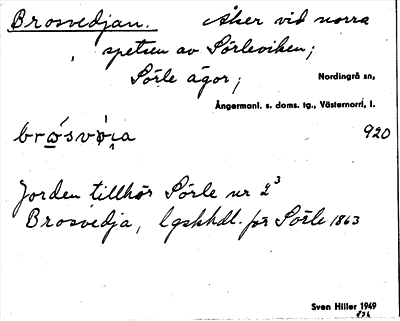 Brosvedjan. Åker vid norra
spetsen av Sörleviken;
Sörle ägor; Nordingrå sn,
Ångermanl. s. doms. tg., Västernorrl. l.
920
Jorden tillhör Sörle nr 2³
Brosvedja, lgskhdl. för Sörle 1863
Sven Hiller 1949